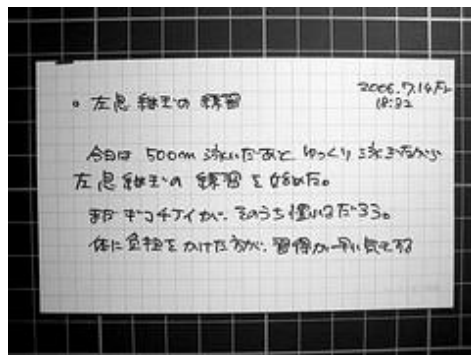 2006.7.14 Fri
18:32
。左息継ぎの練習
今日は 500m 泳いだあと ゆっくり 泳ぎながら
左息継ぎの 練習を始めた。
まだ ギコチナイが、そのうち慣れるだろう。
体に負担をかけた方が、習得が早い気もする